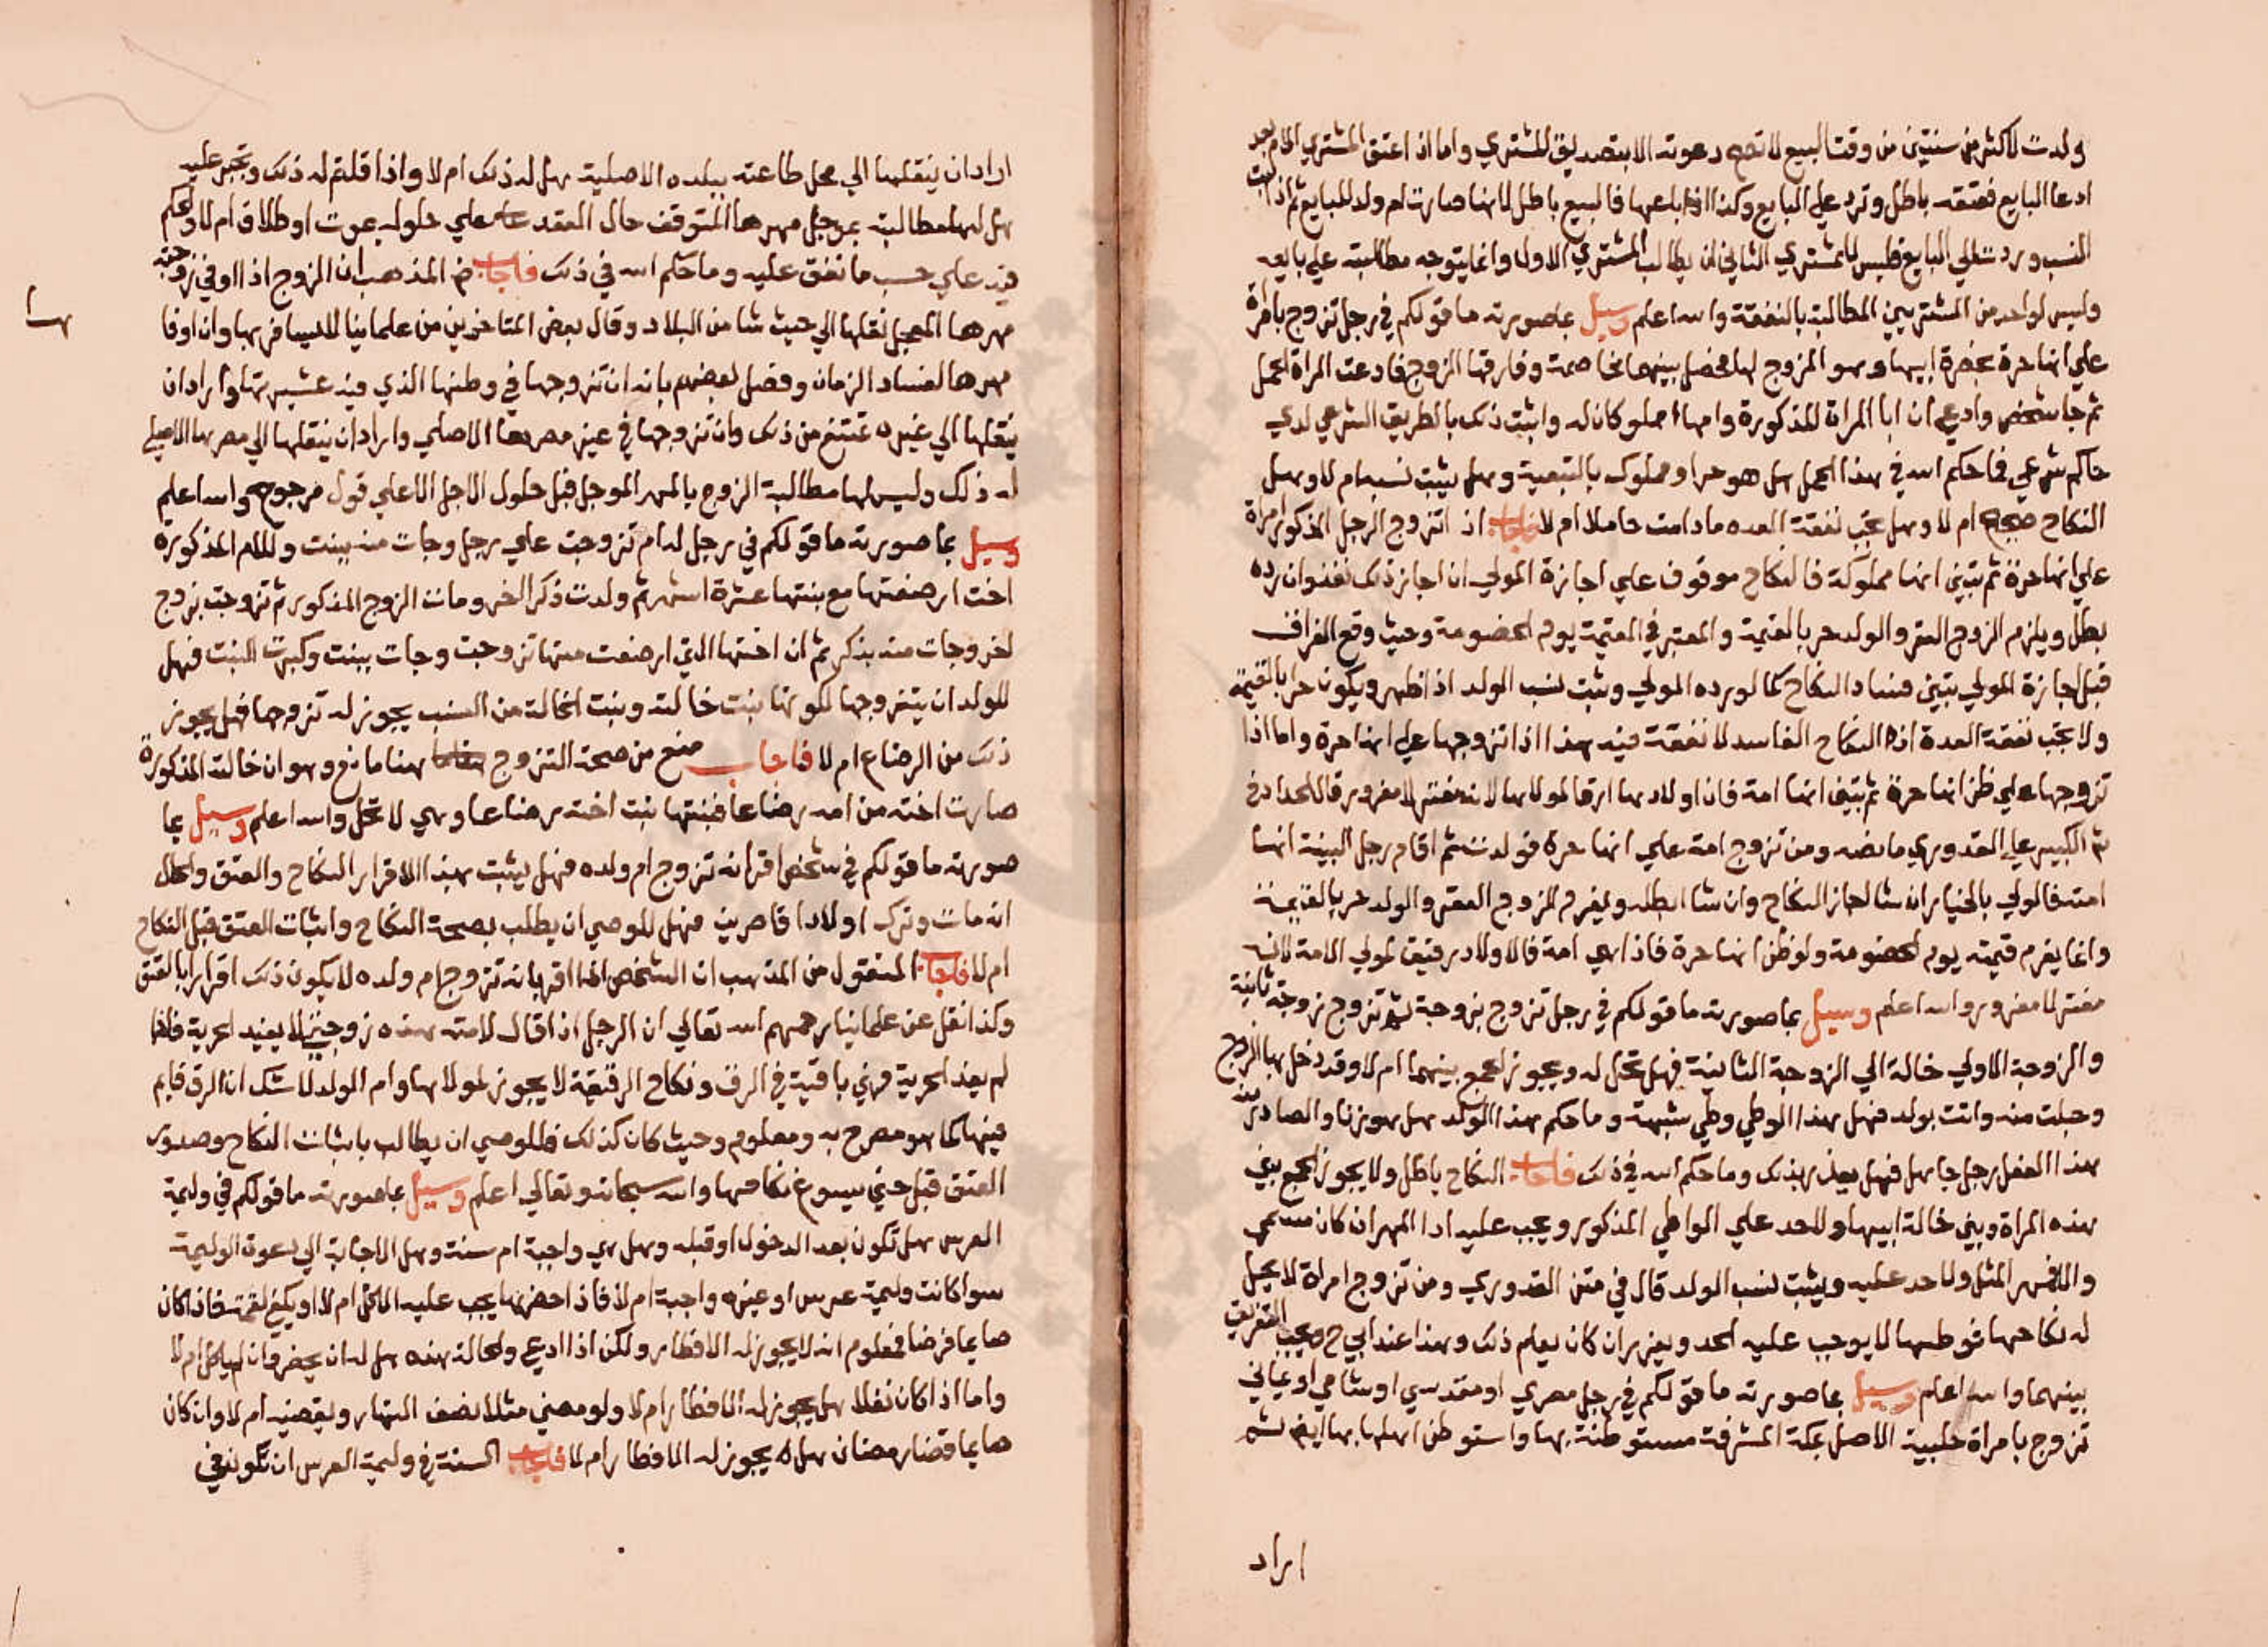 ولدت لاكثر من سنتين من وقت البيع لا تصح دعوته الا بتصديق المشتري واما اذا اعتق المشتري الام بعد
ادعا البايع فعتقه باطل وترد علي البايع وكذا اذا باعها فالبيع باطل لانها صارت ام ولد للبايع ثم اذا ثبت
النسب وردت الي البايع فليس للمشتري الثاني ان يطالب المشتري الاول وانما يتوجه مطالبته علي بايعه
وليس لواحد من المشتريين المطالبة بالنفقة والله اعلم وسيل بما صورته ما قولكم في رجل تزوج بامراة
علي انها حرة بحضرة ابيها وهو المزوج لها فحصل بينهما مخاصمة وفارقها الزوج فادعت المراة الحمل
ثم جا شخص وادعي ان ابا المراة المذكورة وامها مملوكان له واثبت ذلك بالطريق الشرعي لدي
حاكم شرعي فما حكم الله في هذا الحمل هل هو حر او مملوك بالتبعية وهل يثبت نسبه ام لا وهل
النكاح صحيح ام لا وهل تجب نفقة العده ما دامت حاملا ام لا فاجاب اذا تزوج الرجل المذكور امراة
علي انها حرة ثم تبين انها مملوكة فالنكاح موقوف علي اجازة المولي ان اجاز ذلك نفذ وان رده
بطل ويلزم الزوج العقر والولد حر بالقيمة والمعتبر في القيمة يوم الخصومة وحيث وقع الفراق
قبل اجازة المولي تبين فساد النكاح كما لو رده المولي ويثبت نسب الولد اذا ظهر ويكون حرا بالقيمة
ولا تجب نفقة العدة اذ النكاح الفاسد لا نفقة فيه هذا اذا تزوجها علي انها حرة واما اذا
تزوجها علي ظن انها حرة ثم تبين انها امة فان اولادها ارقا لمولاها لانه مغتر لا مغرور قال الحدادي في
شرح الكبير علي القدوري ما نصه ومن تزوج امة علي انها حرة فولدت ثم اقام رجل البينة انها
امته فالمولي بالخيار ان شا اجاز النكاح وان شا ابطله ويغرم الزوج العقر والولد حر بالقيمة
وانما يغرم قيمته يوم الخصومة ولو ظن انها حرة فاذا هي امة فالاولاد رقيق لمولي الامة لانه
مغتر لا مغرور والله اعلم وسيل بما صورته ما قولكم في رجل تزوج بزوجة ثم تزوج زوجة ثانية
والزوجة الاولي خالة ابي الزوجة الثانية فهل تحل له ويجوز الجمع بينهما ام لا وقد دخل بها الزوج
وحبلت منه واتت بولد فهل هذا الوطي وطي شبهة وما حكم هذا الولد هل هو زنا والصادر منه
هذا الفعل رجل جاهل فهل يعذر بذلك وما حكم الله في ذلك فاجاب النكاح باطل ولا يجوز الجمع بين
هذه المراة وبين خالة ابيها ولا حد علي الواطي المذكور ويجب عليه ادا المهر ان كان مسمي
والا فمهر المثل ولا حد عليه ويثبت نسب الولد قال في متن القدوري ومن تزوج امراة لا يحل
له نكاحها فوطيها لا يوجب عليه الحد ويعزر ان كان يعلم ذلك وهذا عند ابي ح ويجب التفريق
بينهما والله اعلم وسيل بما صورته ما قولكم في رجل مصري او مقدسي او شامي او يماني
تزوج بامراة حلبية الاصل بمكة المشرفة مستوطنة بها واستوطن اهلها بها ايض ثم
اراد
اراد ان ينقلها الي محل طاعته ببلده الاصلية هل له ذلك ام لا واذا قلتم له ذلك وتجبر عليه
هل لها مطالبة بموجل مهرها المتوقف حال العقد علي حلوله بموت او طلاق ام لا ولكم
فيه علي حسب ما نفق عليه وما حكم الله في ذلك فاجاب المذهب ان الزوج اذا اوفي زوجته
مهرها المعجل نقلها الي حيث شا من البلاد وقال بعض المتاخرين من علماينا لا يسافر بها وان اوفا
مهرها لفساد الزمان وفصل بعضهم بانه ان تزوجها في وطنها الذي فيه عشيرتها واراد ان
ينقلها الي غيره تمتنع من ذلك وان تزوجها في غير مصرها الاصلي واراد ان ينقلها الي مصرها الاصلي
له ذلك وليس لها مطالبة الزوج بالمهر الموجل قبل حلول الاجل الا علي قول مرجوح والله اعلم
وسيل بما صورته ما قولكم في رجل له ام تزوجت علي رجل وجات منه ببنت وللام المذكورة
اخت ارضعتها مع بنتها عشرة اشهر ثم ولدت ذكرا اخر ومات الزوج المذكور ثم تزوجت بزوج
اخر وجات منه بذكر ثم ان اختها التي ارضعت منها تزوجت وجات ببنت وكبرت البنت فهل
للولد ان يتزوجها لكونها بنت خالته وبنت الخالة من النسب يجوز له تزوجها فهل يجوز
ذلك من الرضاع ام لا فاجاب منع من صحة التزوج هنا مانع وهو ان خالته المذكورة
صارت اخته من امه رضاعا فبنتها بنت اخته رضاعا وهي لا تحل والله اعلم وسيل بما
صورته ما قولكم في شخص اقر انه تزوج ام ولده فهل يثبت بهذا الاقرار النكاح والعتق والحال
انه مات وترك اولادا قاصرين فهل للوصي ان يطلب بصحة النكاح واثبات العتق قبل النكاح
ام لا فاجاب المنقول من المذهب ان الشخص اذا اقر بانه تزوج ام ولده لا يكون ذلك اقرارا بالعتق
وكذا نقل عن علماينا رحمهم الله تعالي ان الرجل اذا قال لامته هذه زوجتي لا يفيد الحرية فاذا
لم يفد الحرية فهي باقية في الرق ونكاح الرقيقة لا يجوز لمولاها وام الولد لا شك ان الرق قايم
فيها كما هو مصرح به ومعلوم وحيث كان كذلك فللوصي ان يطالب باثبات النكاح وصدور
العتق قبل حتي يسوغ نكاحها والله سبحانه وتعالي اعلم وسيل بما صورته ما قولكم في وليمة
العرس هل تكون بعد الدخول او قبله وهل هي واجبة ام سنة وهل الاجابة الي دعوة الوليمة
سوا كانت وليمة عرس او غيره واجبة ام لا فاذا حضرها يجب عليه الاكل ام لا او يكفي لقمة فاذا كان
صايما فرضا فمعلوم انه لا يجوز له الافطار ولكن اذا ادعي والحالة هذه هل له ان يحضر وان لم ياكل ام لا
واما اذا كان نفلا هل يجوز له الافطار ام لا ولو مضي مثلا نصف النهار ويقضيه ام لا وان كان
صايما قضا رمضان هل يجوز له الافطار ام لا فاجاب السنة في وليمة العرس ان تكون في